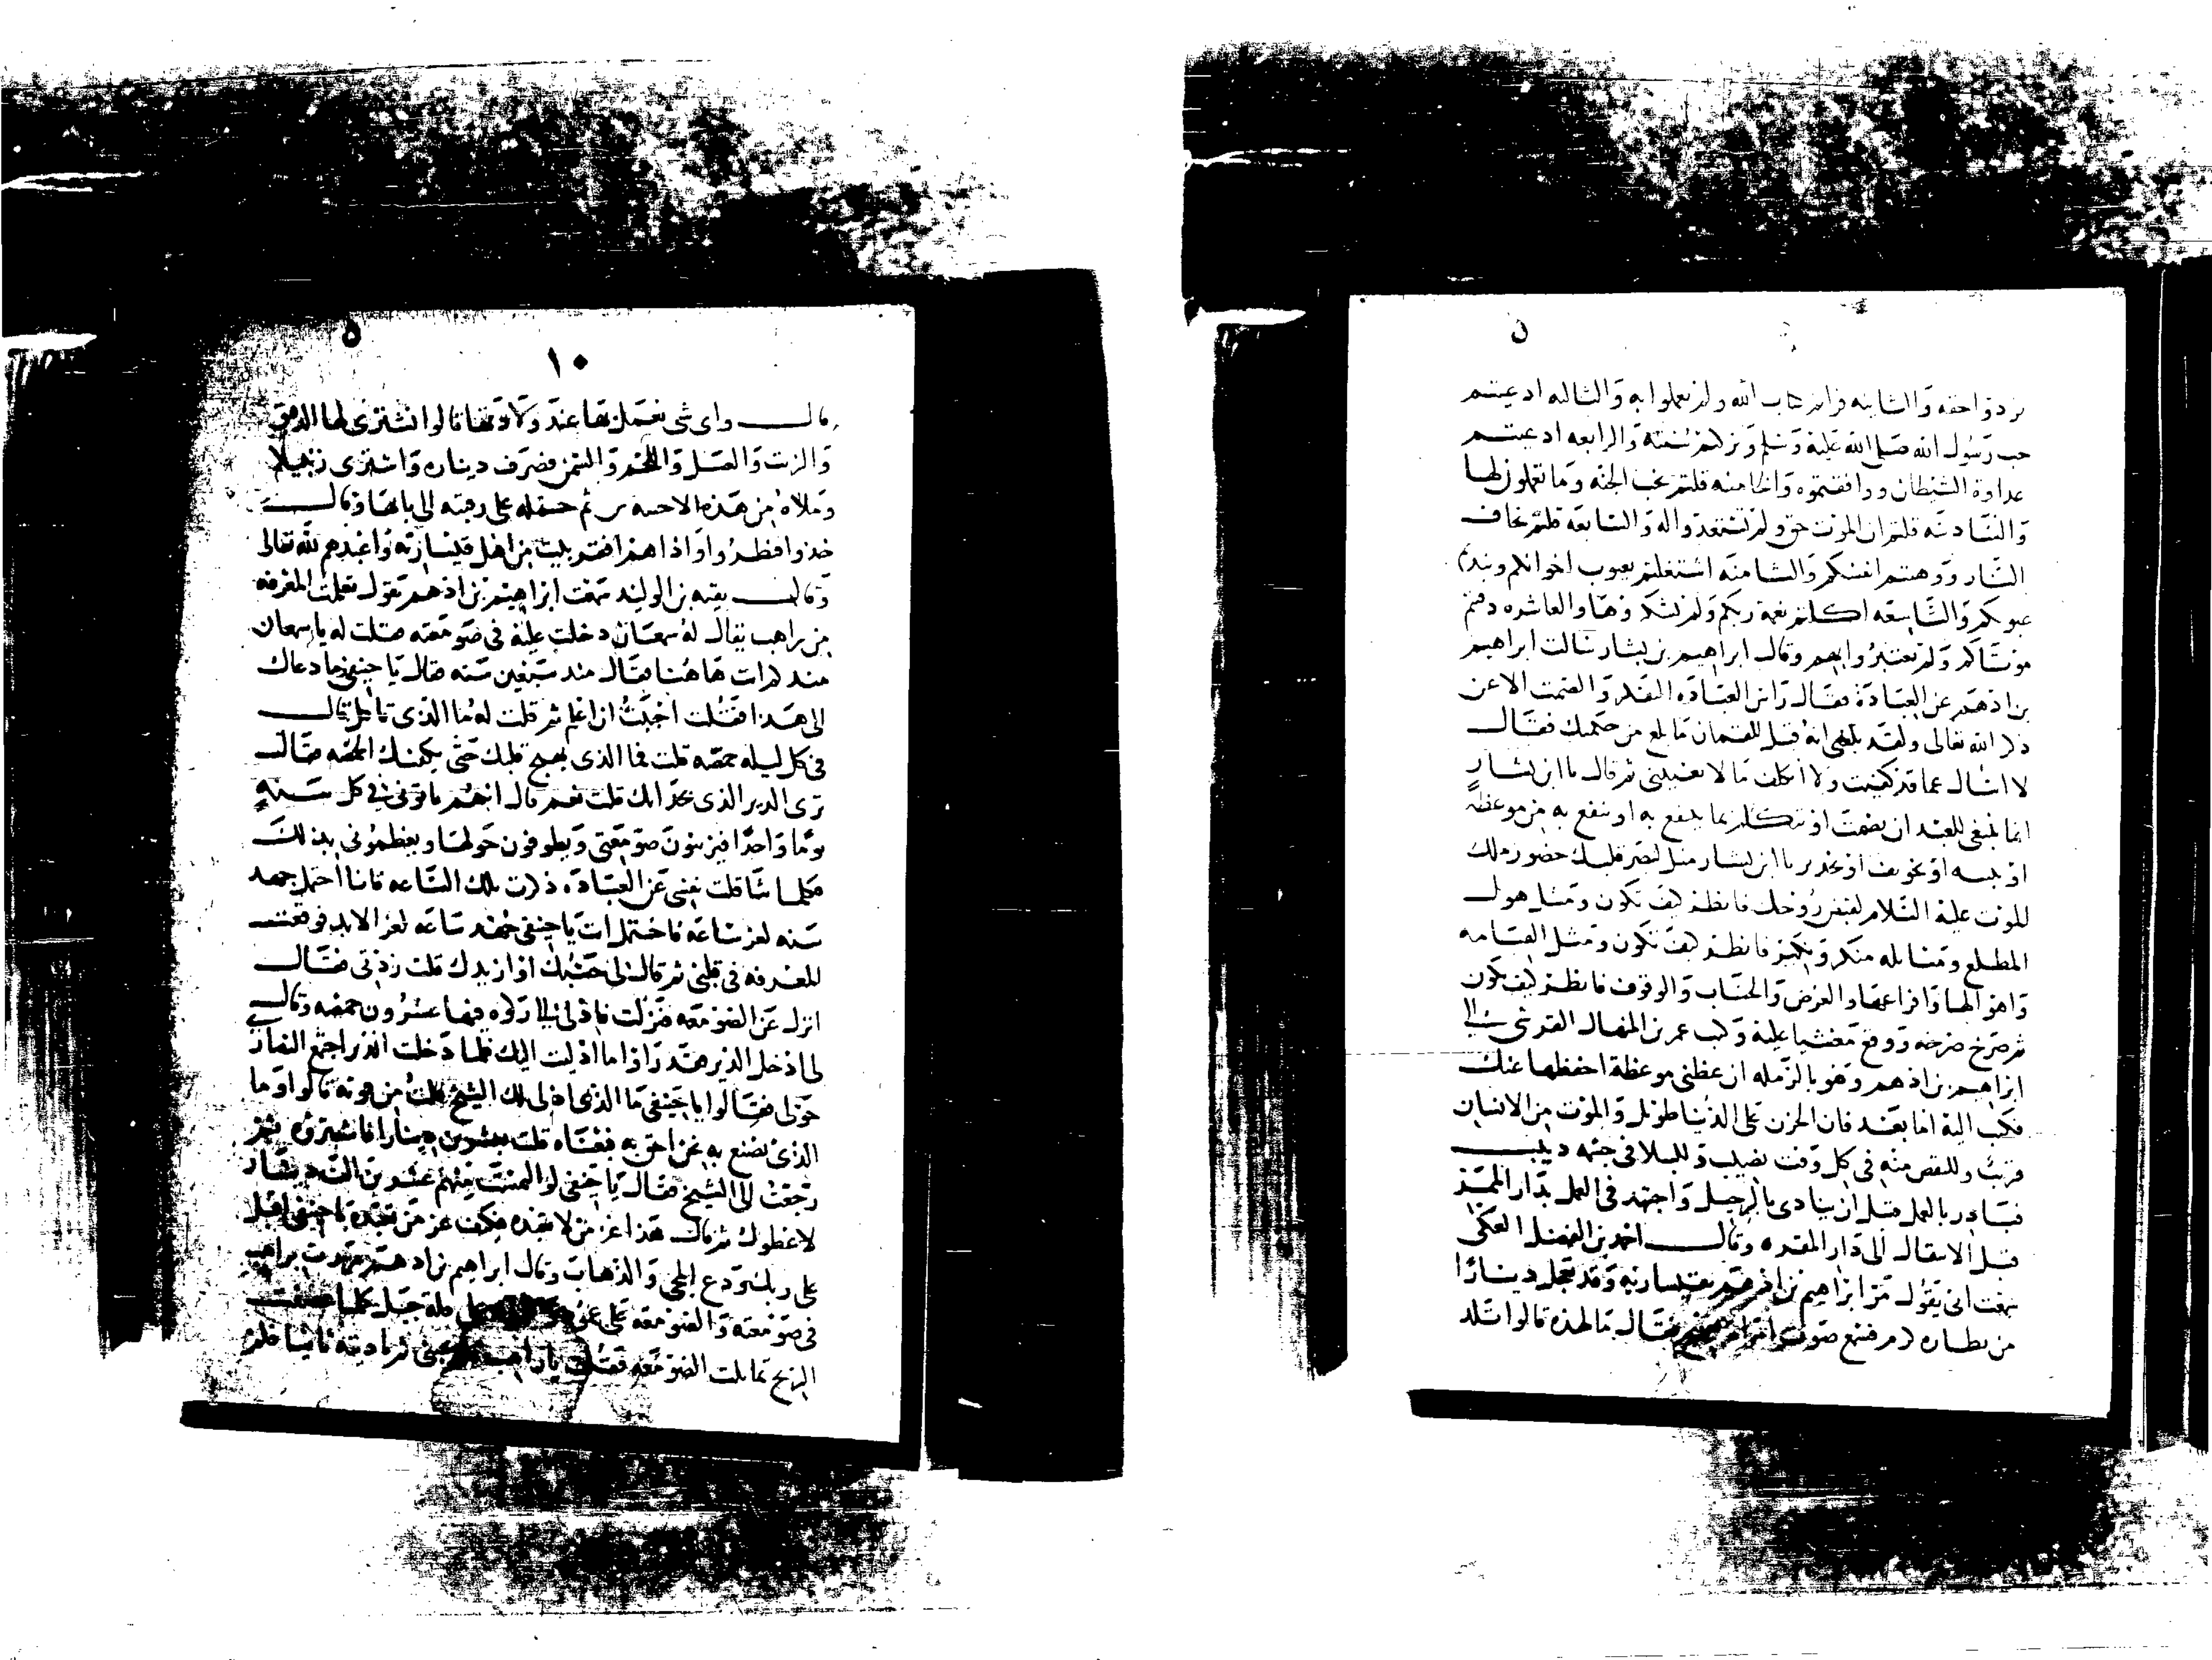 ن
تردوا حقه والثانيه قراتم كتاب الله ولم تعملوا به والثالثه ادعيتم
حب رسول الله صلى الله عليه وسلم وتركتم سنته والرابعه ادعيتم
عداوة الشيطان ووافقتموه والخامسه قلتم نحب الجنه وما تعملون لها
والسادسه قلتم ان الموت حق ولم تستعدوا له والسابعه قلتم نخاف
النار ورهنتم انفسكم والثامنه اشتغلتم بعيوب اخوانكم ونبذتم
عيوبكم والتاسعه اكلتم نعمة ربكم ولم تشكروها والعاشره دفنتم
موتاكم ولم تعتبروا بهم وقال ابراهيم بن بشار سالت ابراهيم
بن ادهم عن العبادة فقال راس العبادة التفكر والصمت الا عن
ذكر الله تعالى ولقد بلغني انه قيل للقمان ما بلغ من حكمتك فقال
لا اسال عما قد كفيت ولا اتكلف ما لا يعنيني ثم قال يا ابن بشار
انما ينبغي للعبد ان يصمت او يتكلم بما ينتفع به او ينفع به من موعظة
او تنبيه او تخويف او تحذير يا ابن بشار مثل لبصر قلبك حضور ملك
الموت عليه السلام لقبض روحك فانظر كيف تكون ومثل هول
المطلع ومسايله منكر ونكير فانظر كيف تكون ومثل القيامه
واهوالها وافزاعها والعرض والحساب والوقوف فانظر كيف تكون
ثم صرخ صرخه ووقع مغشيا عليه وكتب عمر بن المنهال القرشي الى
ابراهيم بن ادهم وهو بالرمله ان عظني موعظة احفظها عنك
فكتب اليه اما بعد فان الحزن على الدنيا طويل والموت من الانسان
قريب وللنقص منه في كل وقت نصيب وللبلا في جسمه دبيب
فبادر بالعمل قبل ان ينادى بالرحيل واجتهد في العمل بدار الممر
قبل الانتقال الى دار المقر وقال احمد بن الفضل العكي
سمعت ابي يقول مر ابراهيم بن ادهم بقيساريه وقد تعجل دينارا
من نطاره كرم فسمع صوت امراه فقال ما لهذه قالوا تلد
٥
١٠
قال واى شي نعمل بها عند ولادتها قالوا نشتري لها الدقيق
والزيت والعسل واللحم والسمن فصرف ديناره واشترى زنبيلا
وملاه من هذه ثم حمله على رقبته الى بابها وقال
خذوا فنظروا واذا هم افقر بيت من اهل قيساريه واعبدهم لله تعالى
وقال بقيه بن الوليد سمعت ابراهيم بن ادهم يقول تعلمت المعرفه
من راهب يقال له سمعان دخلت عليه في صومعته فقلت له يا سمعان
منذ كم انت هاهنا فقال منذ سبعين سنه قال يا حنيفي وما دعاك
الى هذا فقلت احببت ان اعلم ثم قلت له ما الذي تاكل قال
في كل ليله حمصه قلت فما الذي يهيج قلبك حتى يكفيك الحمصه قال
ترى الدير الذي بحذائك قلت نعم قال انهم ياتوني في كل سنه
يوما واحدا فيزينون صومعتي ويطوفون حولها ويعظموني بذلك
فكلما تثاقلت نفسي عن العباده ذكرت تلك الساعه فانا احتمل جهد
سنه لعز ساعه فاحتمل انت يا حنيفي جهد ساعه لعز الابد فوقعت
المعرفه في قلبي ثم قال لي حسبك او ازيدك قلت زدني فقال
انزل عن الصومعه فنزلت فادلى الي ركوه فيها عشرون حمصه وقال
لي ادخل الدير فقد راوا ما ادليت اليك فلما دخلت الدير اجتمع النصارى
حولي فقالوا يا حنيفي ما الذي ادلى لك الشيخ قلت من قوته قالوا وما
الذي تصنع به نحن احق به فبعناه قلت بعشرين دينارا فاشتروه ثم
رجعت الى الشيخ فقال يا حنيفي لو التمست منهم عشرين الف دينار
لاعطوك ثم قال هذا عز من لا تعبده فكيف عز من تعبده يا حنيفي اقبل
على ربك ودع المجي والذهاب وقال ابراهيم بن ادهم مررت براهب
في صومعته والصومعه على عمود على قلة جبل كلما عصفت
الريح تمايلت الصومعه فقلت يا راهب يجبني ثم ناديته ثانيا فلم